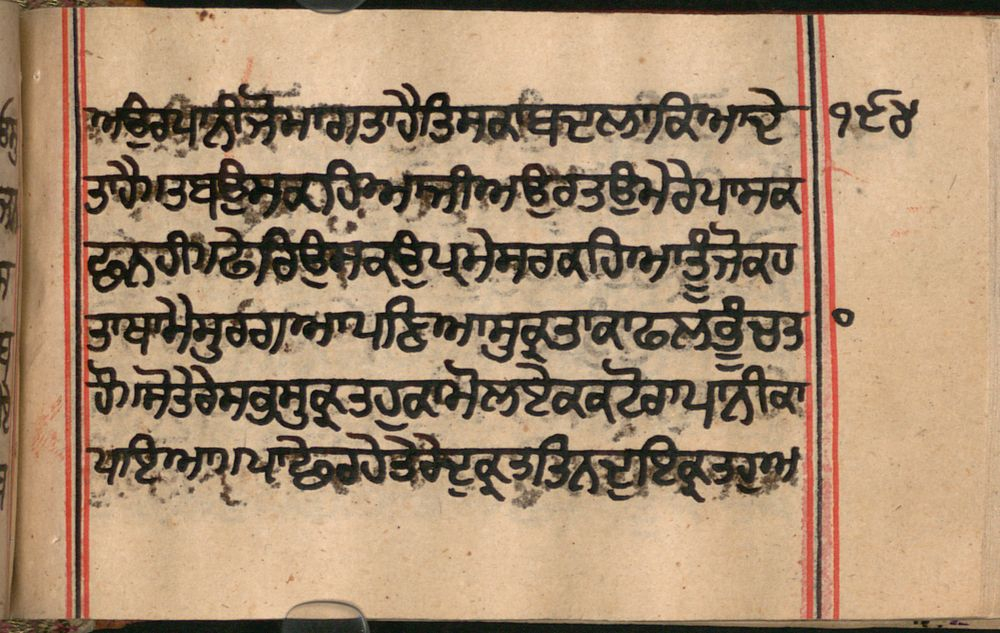 ਅਉਰਪਾਨੀਜੋਮਾਗਤਾਹੈਤਿਸਕਾਬਦਲਾਕਿਆਦੇ ੧੯੪
ਤਾਹੈ॥ਤਬਉਸਕਹਿਆਜੀਅਉਰਤਉਮੇਰੇਪਾਸਕ
ਛੁਨਹੀ॥ਫੇਰਿਉਸਕਉਪਰਮੇਸਰਕਹਿਆਤੂੰਜੋਕਹ
ਤਾਥਾਮੈਸੁਰਗਆਪਣਿਆਸੁਕ੍ਰਤਾਕਾਫਲਭੂੰਚਤ
ਹੌ॥ਸੋਤੇਰੇਸਭੁਸੁਕ੍ਰਤਹੁਕਾਮੋਲਏਕਕਟੋਰਾਪਾਨੀਕਾ
ਪਾਇਆ॥ਪਾਛੇਰਹੇਤੇਰੇਦੁਕ੍ਰਤਤਿਨਦੁਇਕ੍ਰਤਹੁਅ